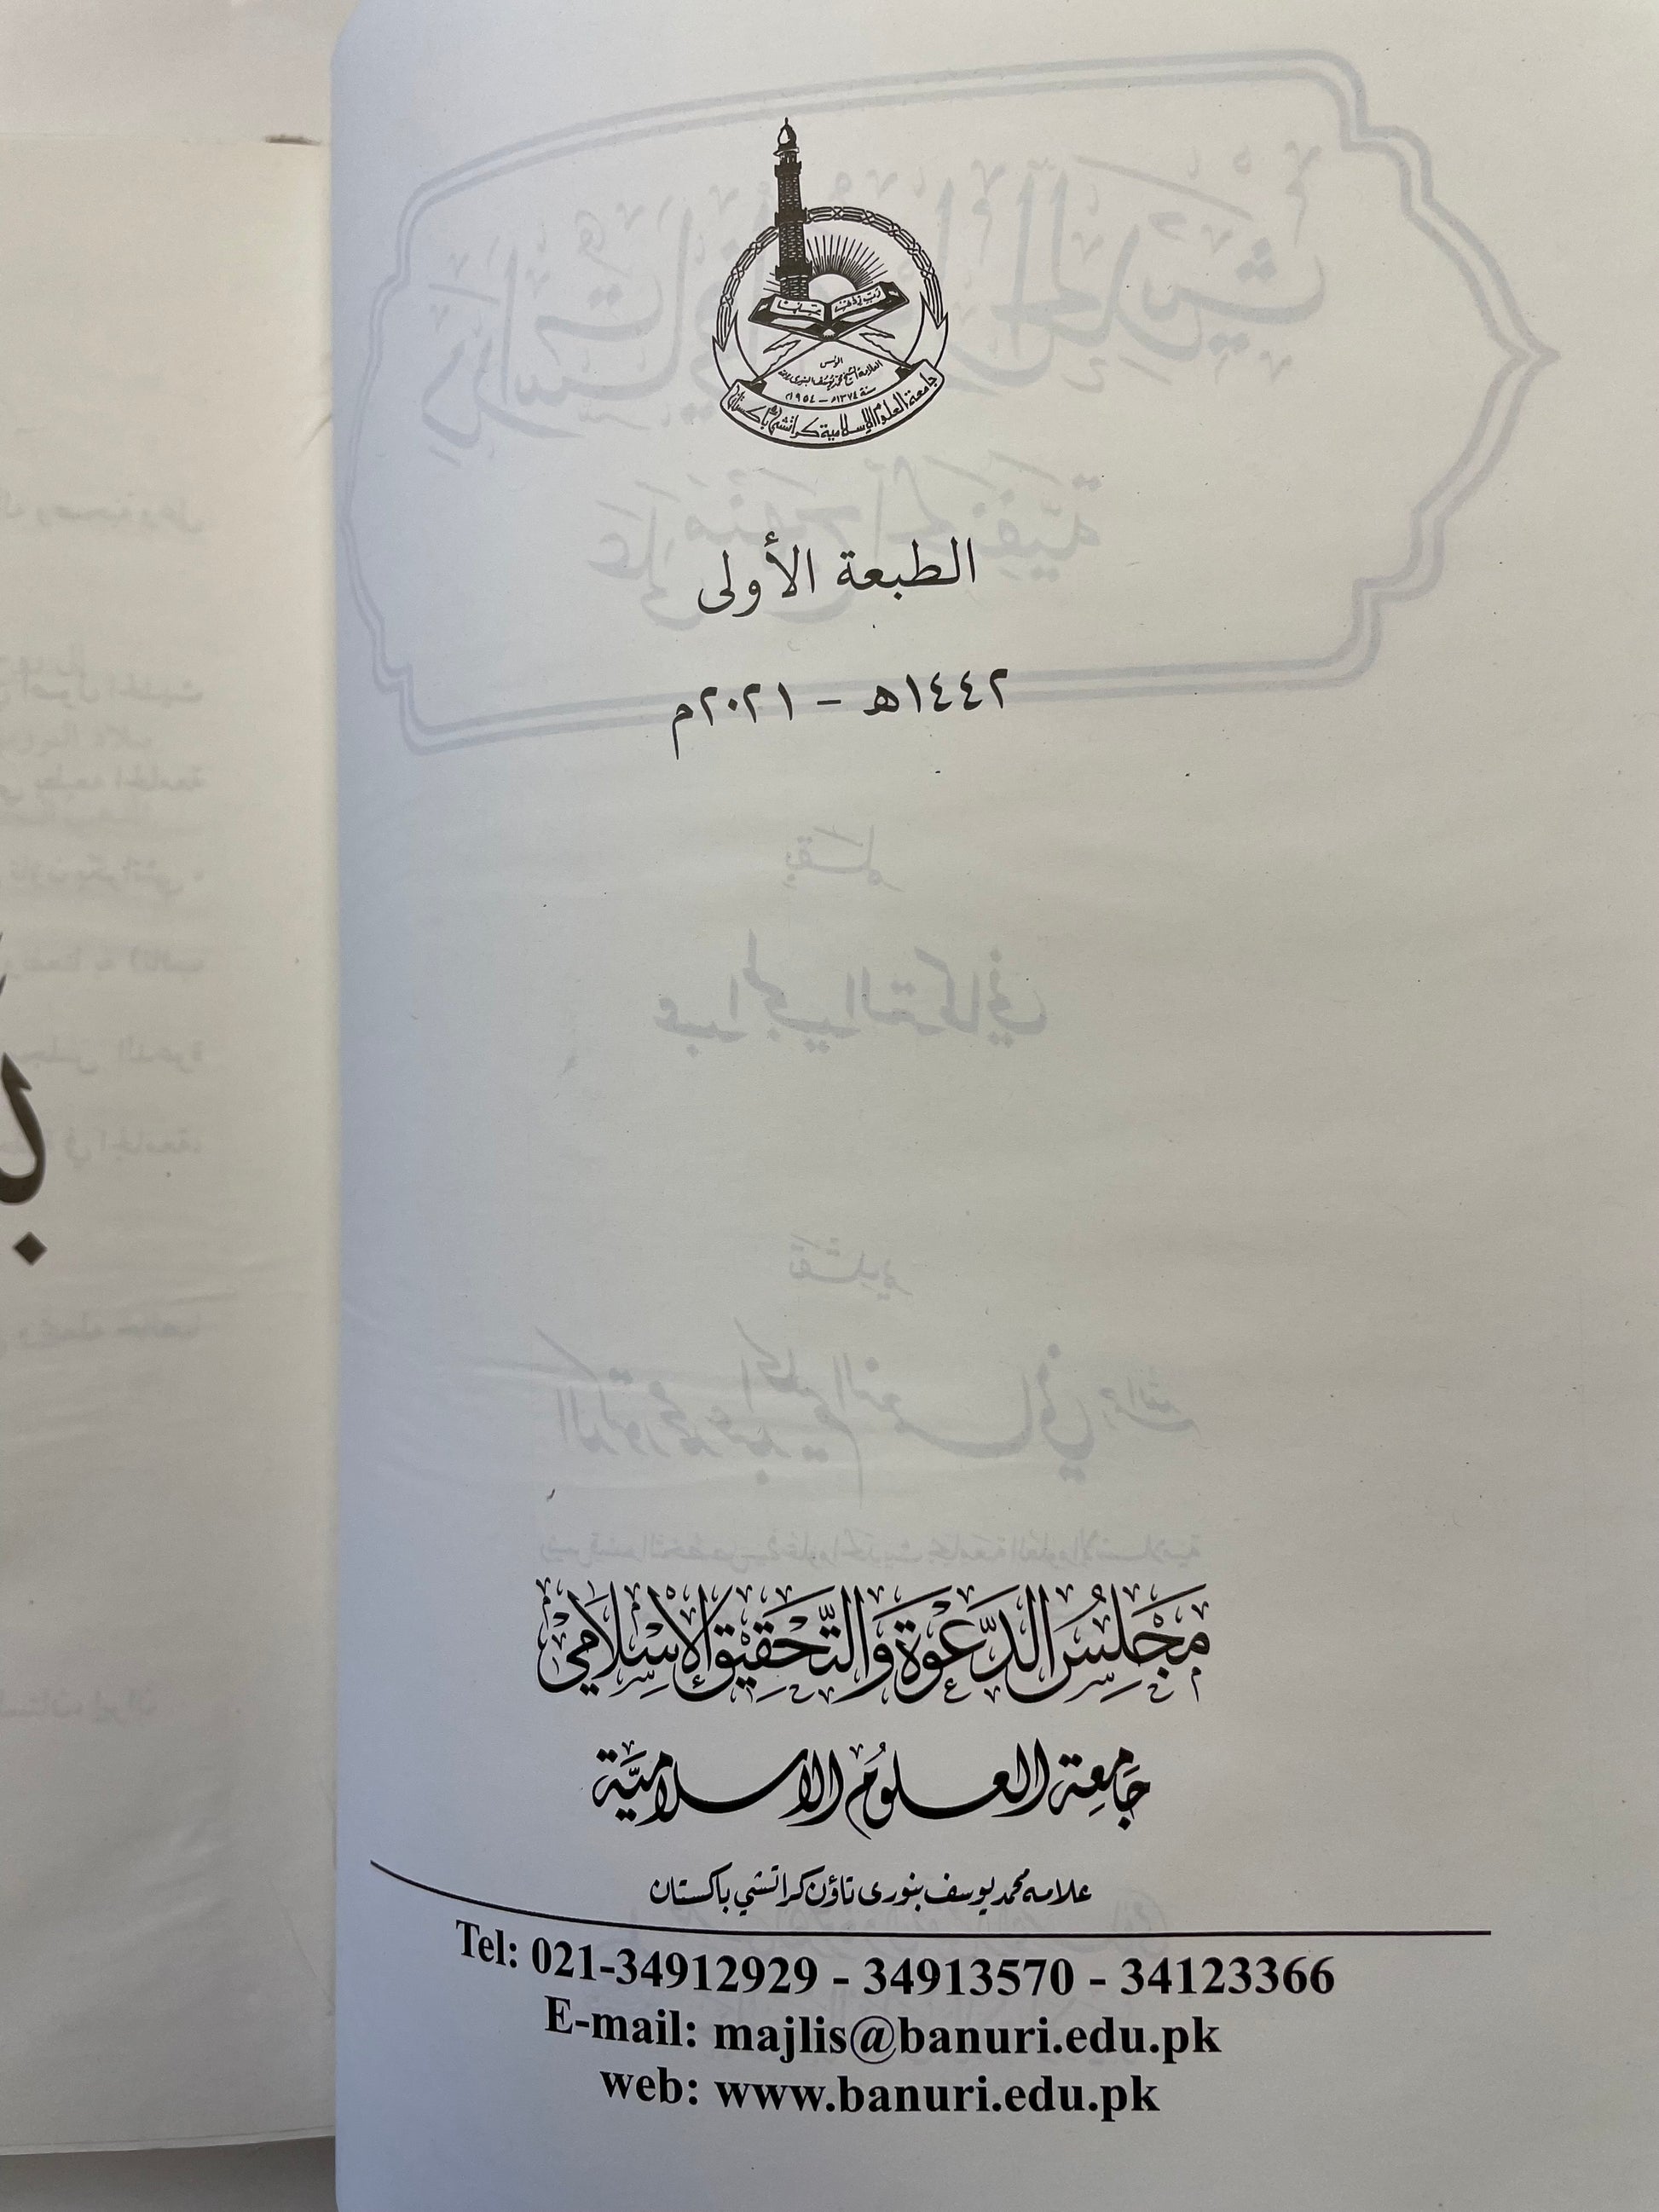 المؤسس
العلامة الشيخ محمد يوسف البنوري رحمه الله
سنة ١٣٧٤ھ – ١٩٥٤م
جامعة العلوم الإسلامية كراتشي باكستان
الطبعة الأولى
١٤٤٢هـ - ٢٠٢١م
مَجْلِسُ الدَّعْوَةِ وَالتَّحْقِيْقِ الْإِسْلَامِيْ
جَامِعَة العلُوم الاسلاميَّة
علامه محمد يوسف بنوری تاؤن كراتشي باكستان
Tel: 021-34912929 - 34913570 - 34123366
E-mail: majlis@banuri.edu.pk
web: www.banuri.edu.pk